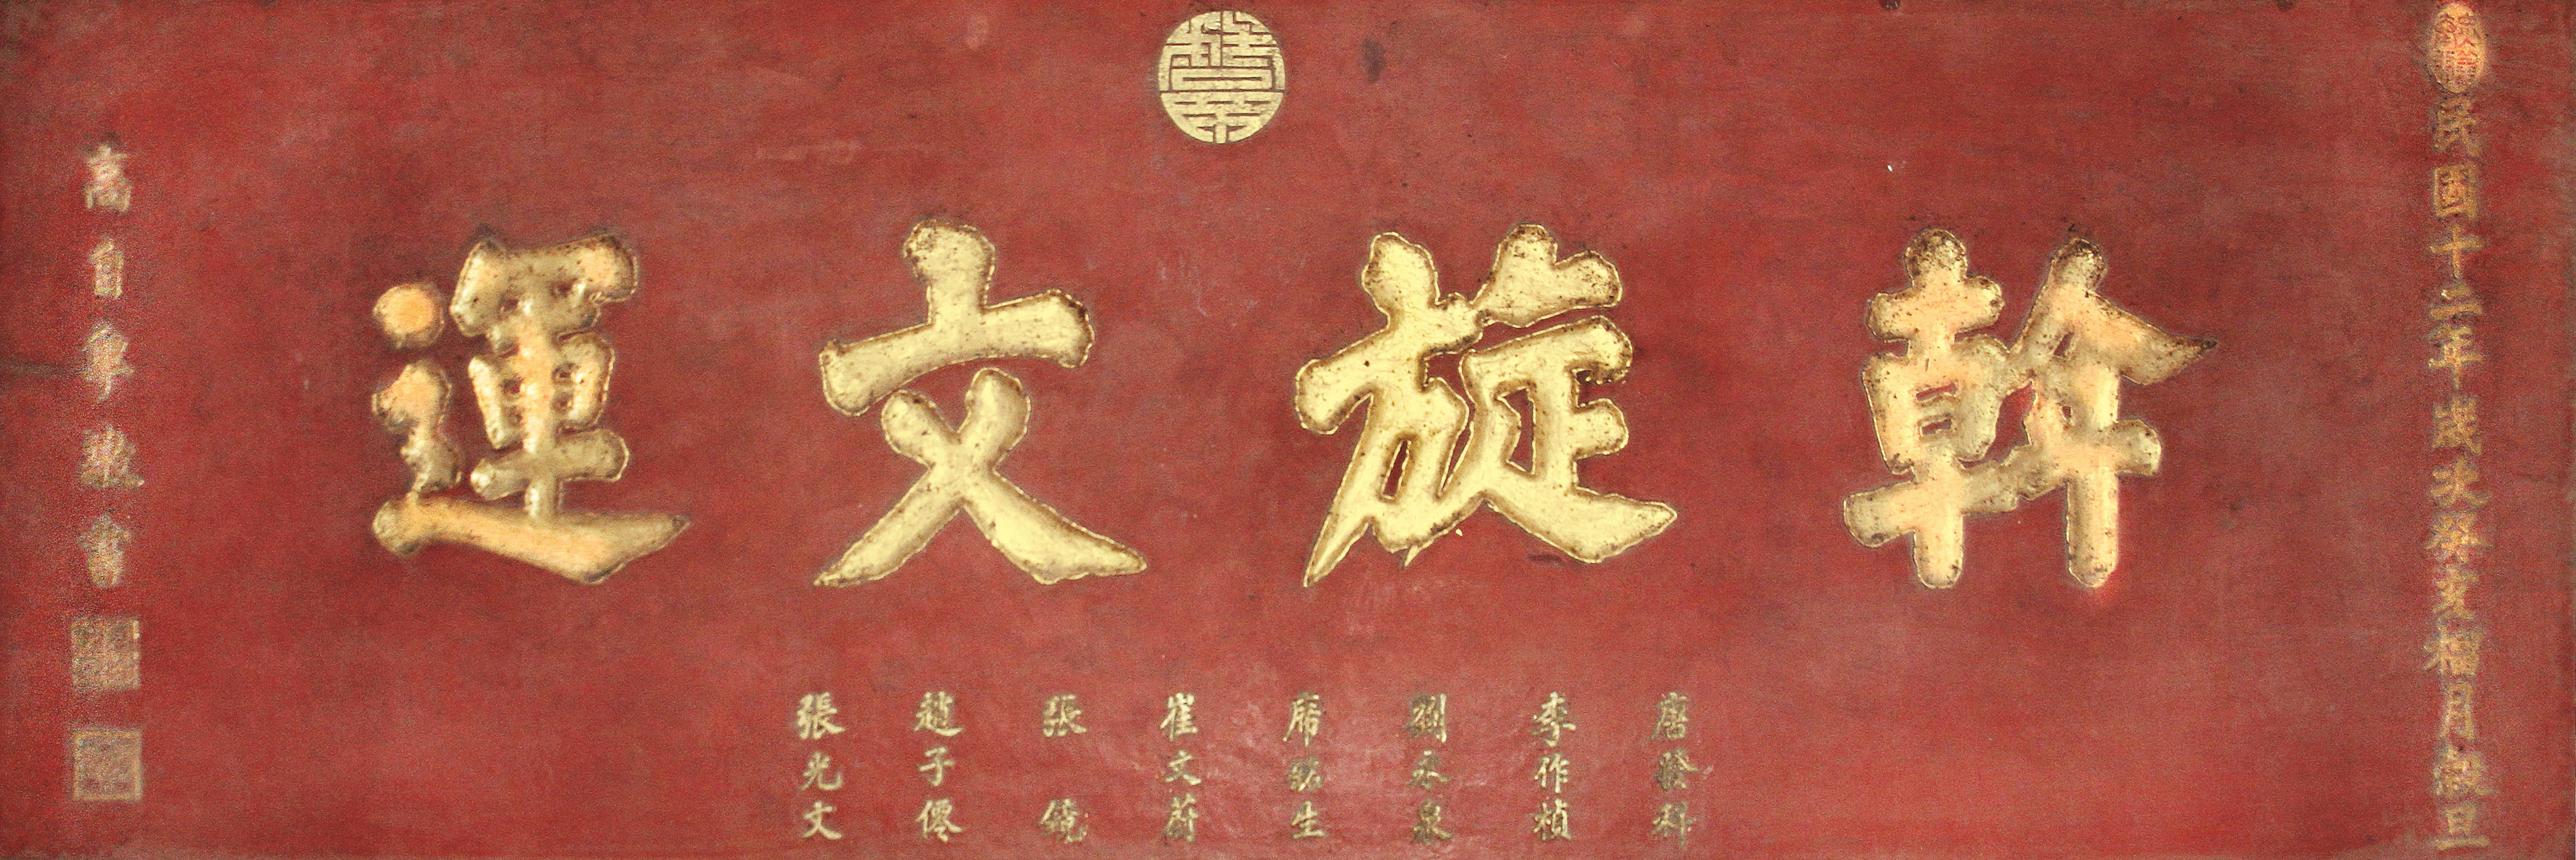 民國十二年歲次癸亥榴月穀旦
斡旋文運
唐發科
李作楨
劉永泉
席銘生
崔文蔚
張鏡
趙子儒
張光文
高自卑敬書